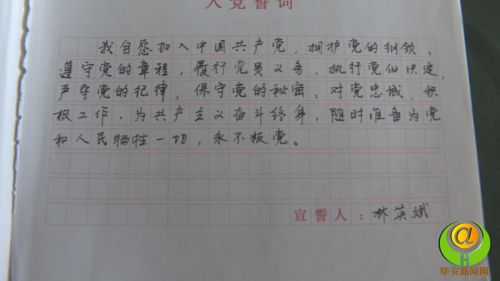 入党誓词
我自愿加入中国共产党，拥护党的纲领、
遵守党的章程，履行党员义务，执行党的决定，
严守党的纪律，保守党的秘密，对党忠诚，积
极工作，为共产主义奋斗终身，随时准备为党
和人民牺牲一切，永不叛党。
宣誓人：林英斌
@
华安新闻网